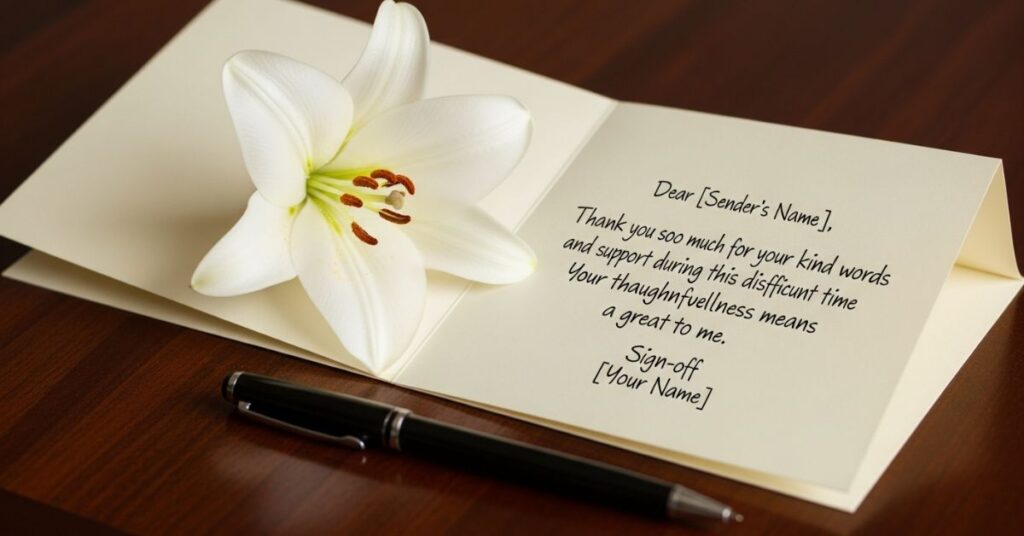 Dear [Sender's Name],
Thank you soo much for your kind words
and support during this disfficunt time
Your thaughnfuellness means
a great to me.
Sign-off
[Your Name]